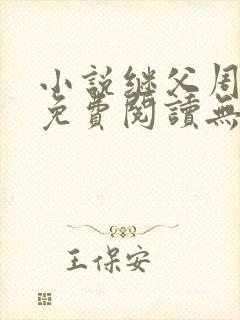 小説继父周
免費閱讀無
王保安